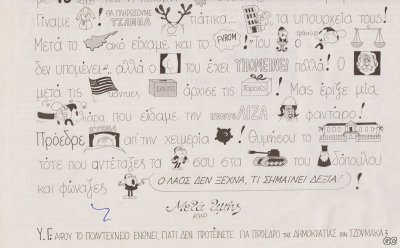 Γίναμε ! ΘΑ ΠΛΗΡΩΣΟΥΜΕ ΤΖΑΜΠΑ πιάτκα... τα υπουργεία τους!
Μετά το ακό είχαμε και το EVROM! Του ο
δεν υπομένει".. αλλά ο του έχει ΥΠΟΜΕΙΝΕΙ πολλά! Ο
μετά τις πάντιμες ΕΚΛΟΓΕΣ άρχισε τις Παροχές! Μας έριξε μία
λιάρα που είδαμε την ΛΙΖΑ φαντάρο!
Πρόεδρε απ' την χειμερία! Θυμήσου το
τότε που αντέταξες τα σου στα του δόπουλου
και φώναξες Ο ΛΑΟΣ ΔΕΝ ΞΕΧΝΑ, ΤΙ ΣΗΜΑΙΝΕΙ ΔΕΞΙΑ!
ΚΥΡ
Υ.Γ. ΑΦΟΥ ΤΟ ΠΟΛΥΤΕΧΝΕΙΟ ΕΝΩΝΕΙ, ΓΙΑΤΙ ΔΕΝ ΠΡΟΤΕΙΝΕΤΕ ΓΙΑ ΠΡΟΕΔΡΟ ΤΗΣ ΔΗΜΟΚΡΑΤΙΑΣ ΤΟΝ ΤΖΟΥΜΑΚΑ;